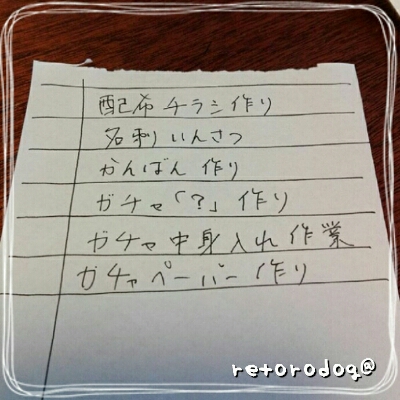 配布チラシ作り
名刺いんさつ
かんばん作り
ガチャ「?」作り
ガチャ中身入れ作業
ガチャペーパー作り
retorodog@